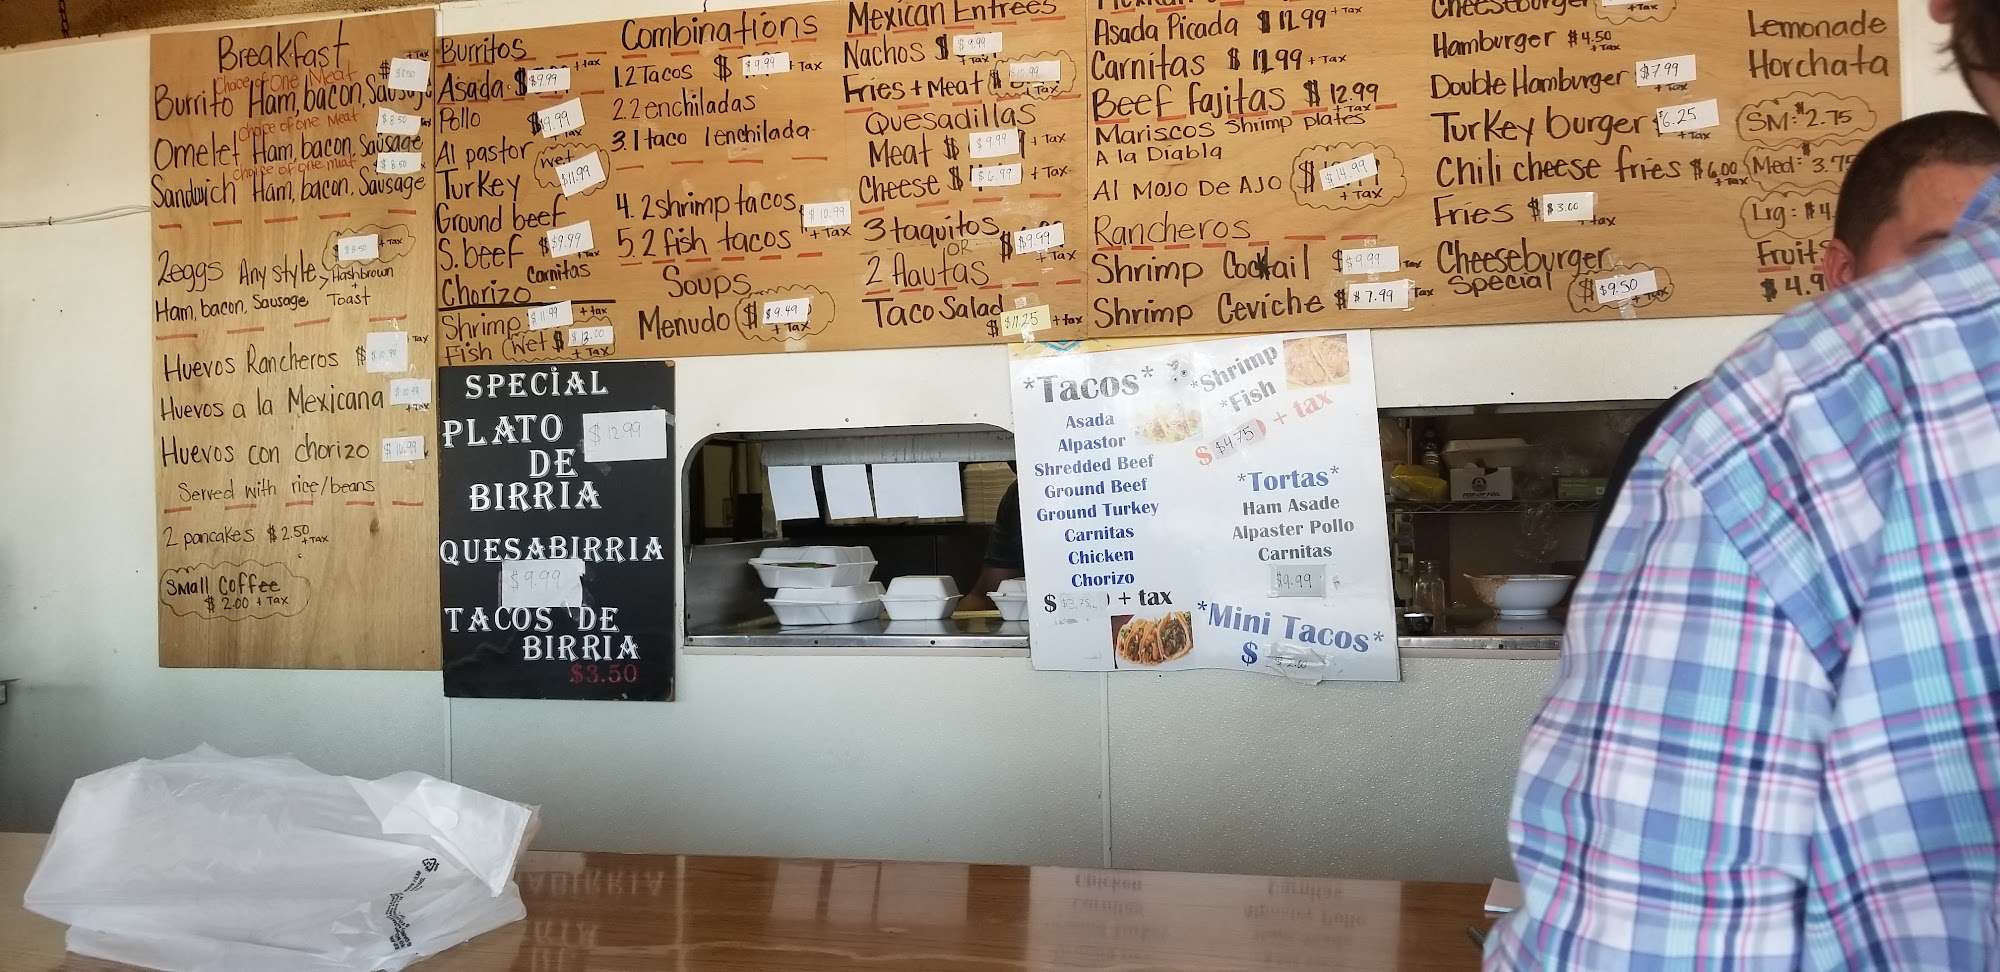 Breakfast
+ Tax
Choice of One Meat
Burrito Ham, bacon, Sausage $ $8.50
choice of one Meat
Omelet Ham, bacon, Sausage $ 8.50
choice of one meat
Sandwich Ham, bacon, Sausage $ 8.50
2 eggs Any style, Hashbrown + Toast $8.50 + Tax
Ham, bacon, Sausage
Huevos Rancheros $ $10.99 + Tax
Huevos a la Mexicana $10.99 + Tax
Huevos con chorizo $10.99
Served with rice/beans
2 pancakes $2.50 + Tax
Small Coffee
$ 2.00 + Tax
Burritos
Asada $ $9.99 + tax
Pollo $9.99
Tax
Al pastor
Turkey
Wet $11.99
Ground beef
S. beef $ $9.99
Carnitas
Chorizo
Shrimp $11.99 + tax
Fish (Wet $ 13.00
+ Tax
Combinations
1. 2 Tacos $ $9.99 + Tax
2. 2 enchiladas
3. 1 taco 1 enchilada
4. 2 shrimp tacos $10.99
5. 2 fish tacos + Tax
Soups
Menudo $ $9.49
+ Tax
Mexican Entrees
Nachos $ $9.99
+ Tax
Fries + Meat $ $10.99
+ Tax
Quesadillas
Meat $ $9.99 + Tax
Cheese $ $6.99 + Tax
3 taquitos
OR
$ $9.99
+ Tax
2 flautas
Taco Salad
$ $11.25 + tax
Asada Picada $11.99 + Tax
Carnitas $11.99 + Tax
Beef fajitas $12.99
+ Tax
Mariscos Shrimp plates
A la Diabla
Al MOJO DE AJO $ $14.99
+ Tax
Rancheros
Shrimp Cocktail $ $9.99 Tax
Shrimp Ceviche $ $7.99 Tax
Cheeseburger
+ Tax
Hamburger $4.50
+ Tax
Double Hamburger $7.99
+ Tax
Turkey burger $6.25
+ Tax
Chili cheese fries $6.00
+ Tax
Fries $ $3.00
+ Tax
Cheeseburger
Special $ $9.50
+ Tax
Lemonade
Horchata
SM: $2.75
Med: $3.75
Lrg: $4.
Fruit
$4.9
SPECIAL
PLATO $12.99
DE
BIRRIA
QUESABIRRIA
$9.99
TACOS DE
BIRRIA
$3.50
*Tacos*
Asada
Alpastor
Shredded Beef
Ground Beef
Ground Turkey
Carnitas
Chicken
Chorizo
$ $3.75 + tax
*Shrimp
*Fish
$ $4.75 + tax
*Tortas*
Ham Asade
Alpaster Pollo
Carnitas
$9.99
*Mini Tacos*
$ $2.00